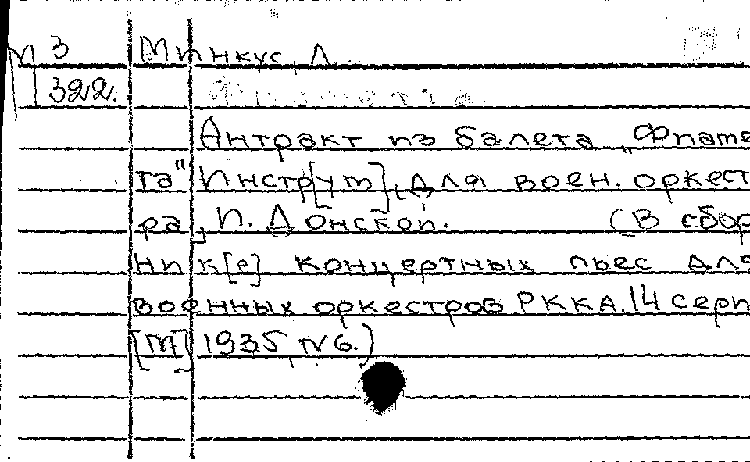 М 3 Минкус, Л.
322. Фиаметта
Антракт из балета „Фиаме
та" Инстр[ум], для воен. оркест
ра, И. Донской. (В сбор
ник[е] концертных пьес для
военных оркестров РККА. 14 серп
[М] 1935, №6.)